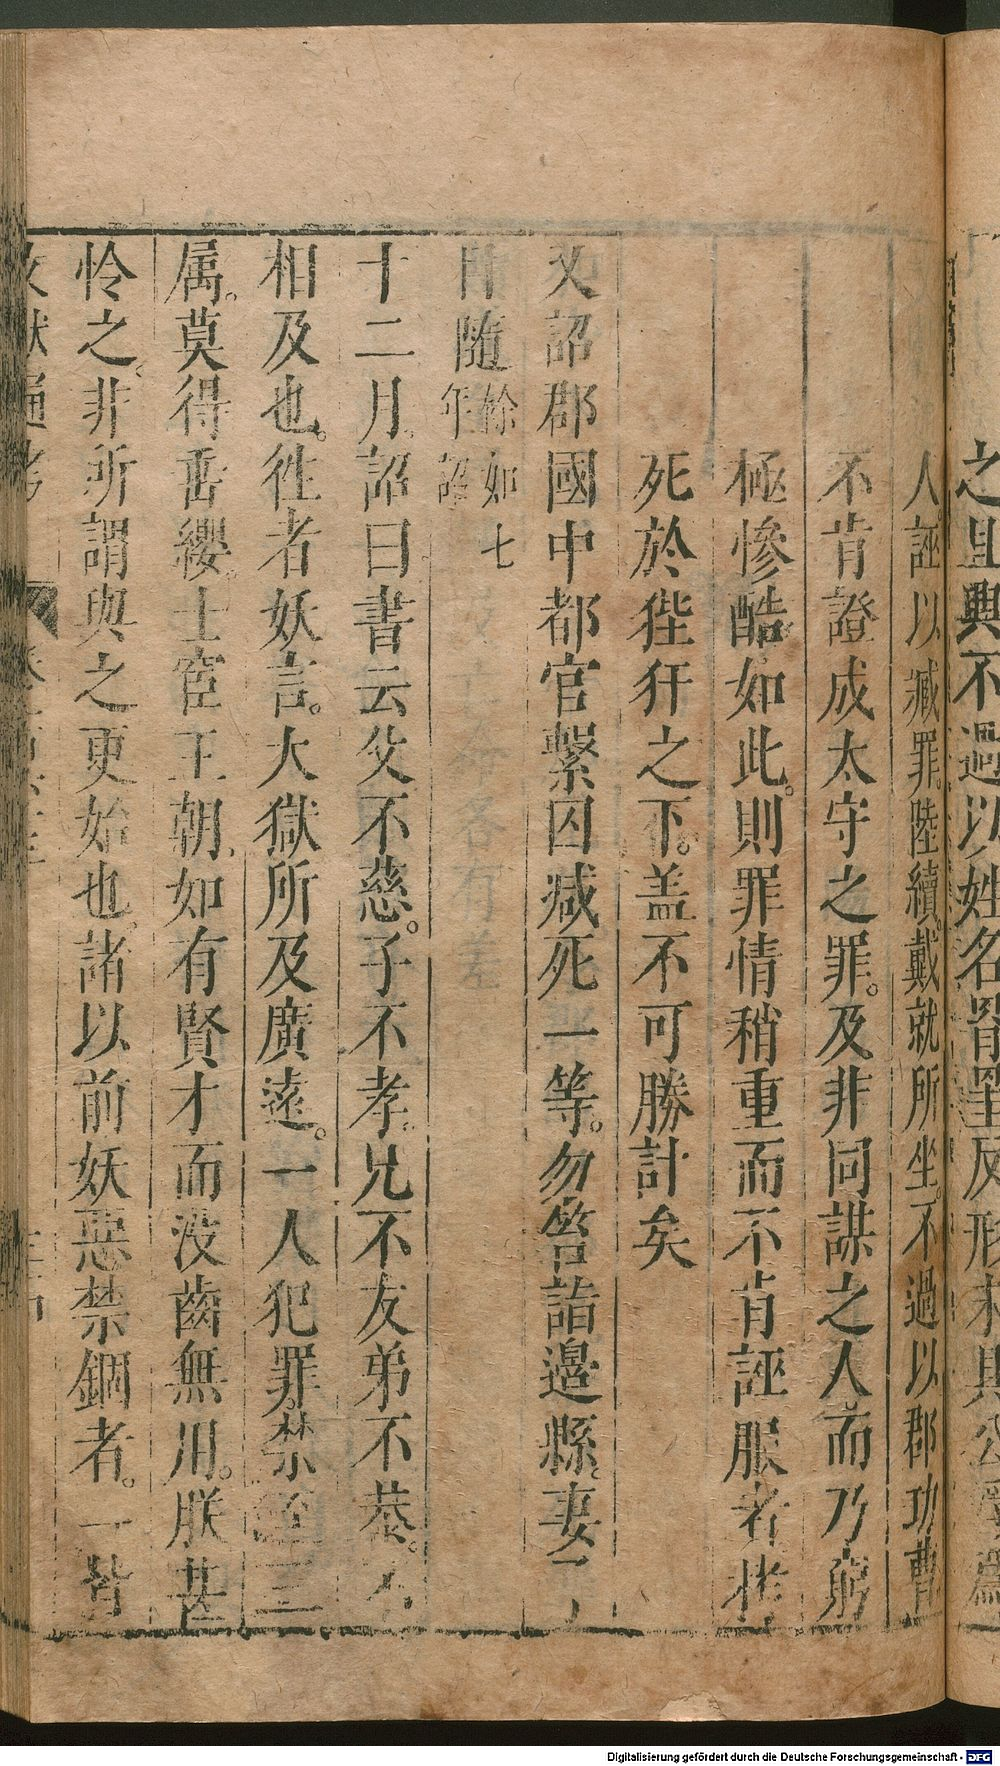 之里與不過以姓名
人誣以贓罪陸續。戴就所坐。不過以郡功曹
不肯證成太守之罪。及非同謀之人。而乃窮
極慘酷如此。則罪情稍重而不肯誣服者拷
死於狴犴之下。盖不可勝計矣
又詔郡國中都官繫囚减死一等。勿笞詣邊縣。妻子
自隨餘如七年詔
十二月。詔曰書云父不慈。子不孝。兄不友弟不恭。不
相及也。徃者妖言。大獄所及廣遠。一人犯罪。禁至三
属。莫得垂纓。士宦王朝。如有賢才而没齒無用。朕甚
怜之。非所謂與之更始也。諸以前妖惡禁錮者。一皆
Digitalisierung gefördert durch die Deutsche Forschungsgemeinschaft - DFG